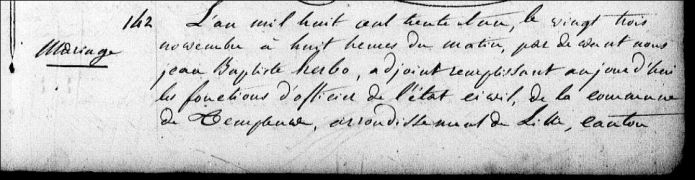 142 L'an mil huit cent trente deux, le vingt trois
Mariage novembre à huit heures du matin, par devant nous
jean Baptiste herbo, adjoint remplissant aujourd'hui
les fonctions d'officier de l'état civil, de la commune
de Templeuve, arrondissement de Lille, canton